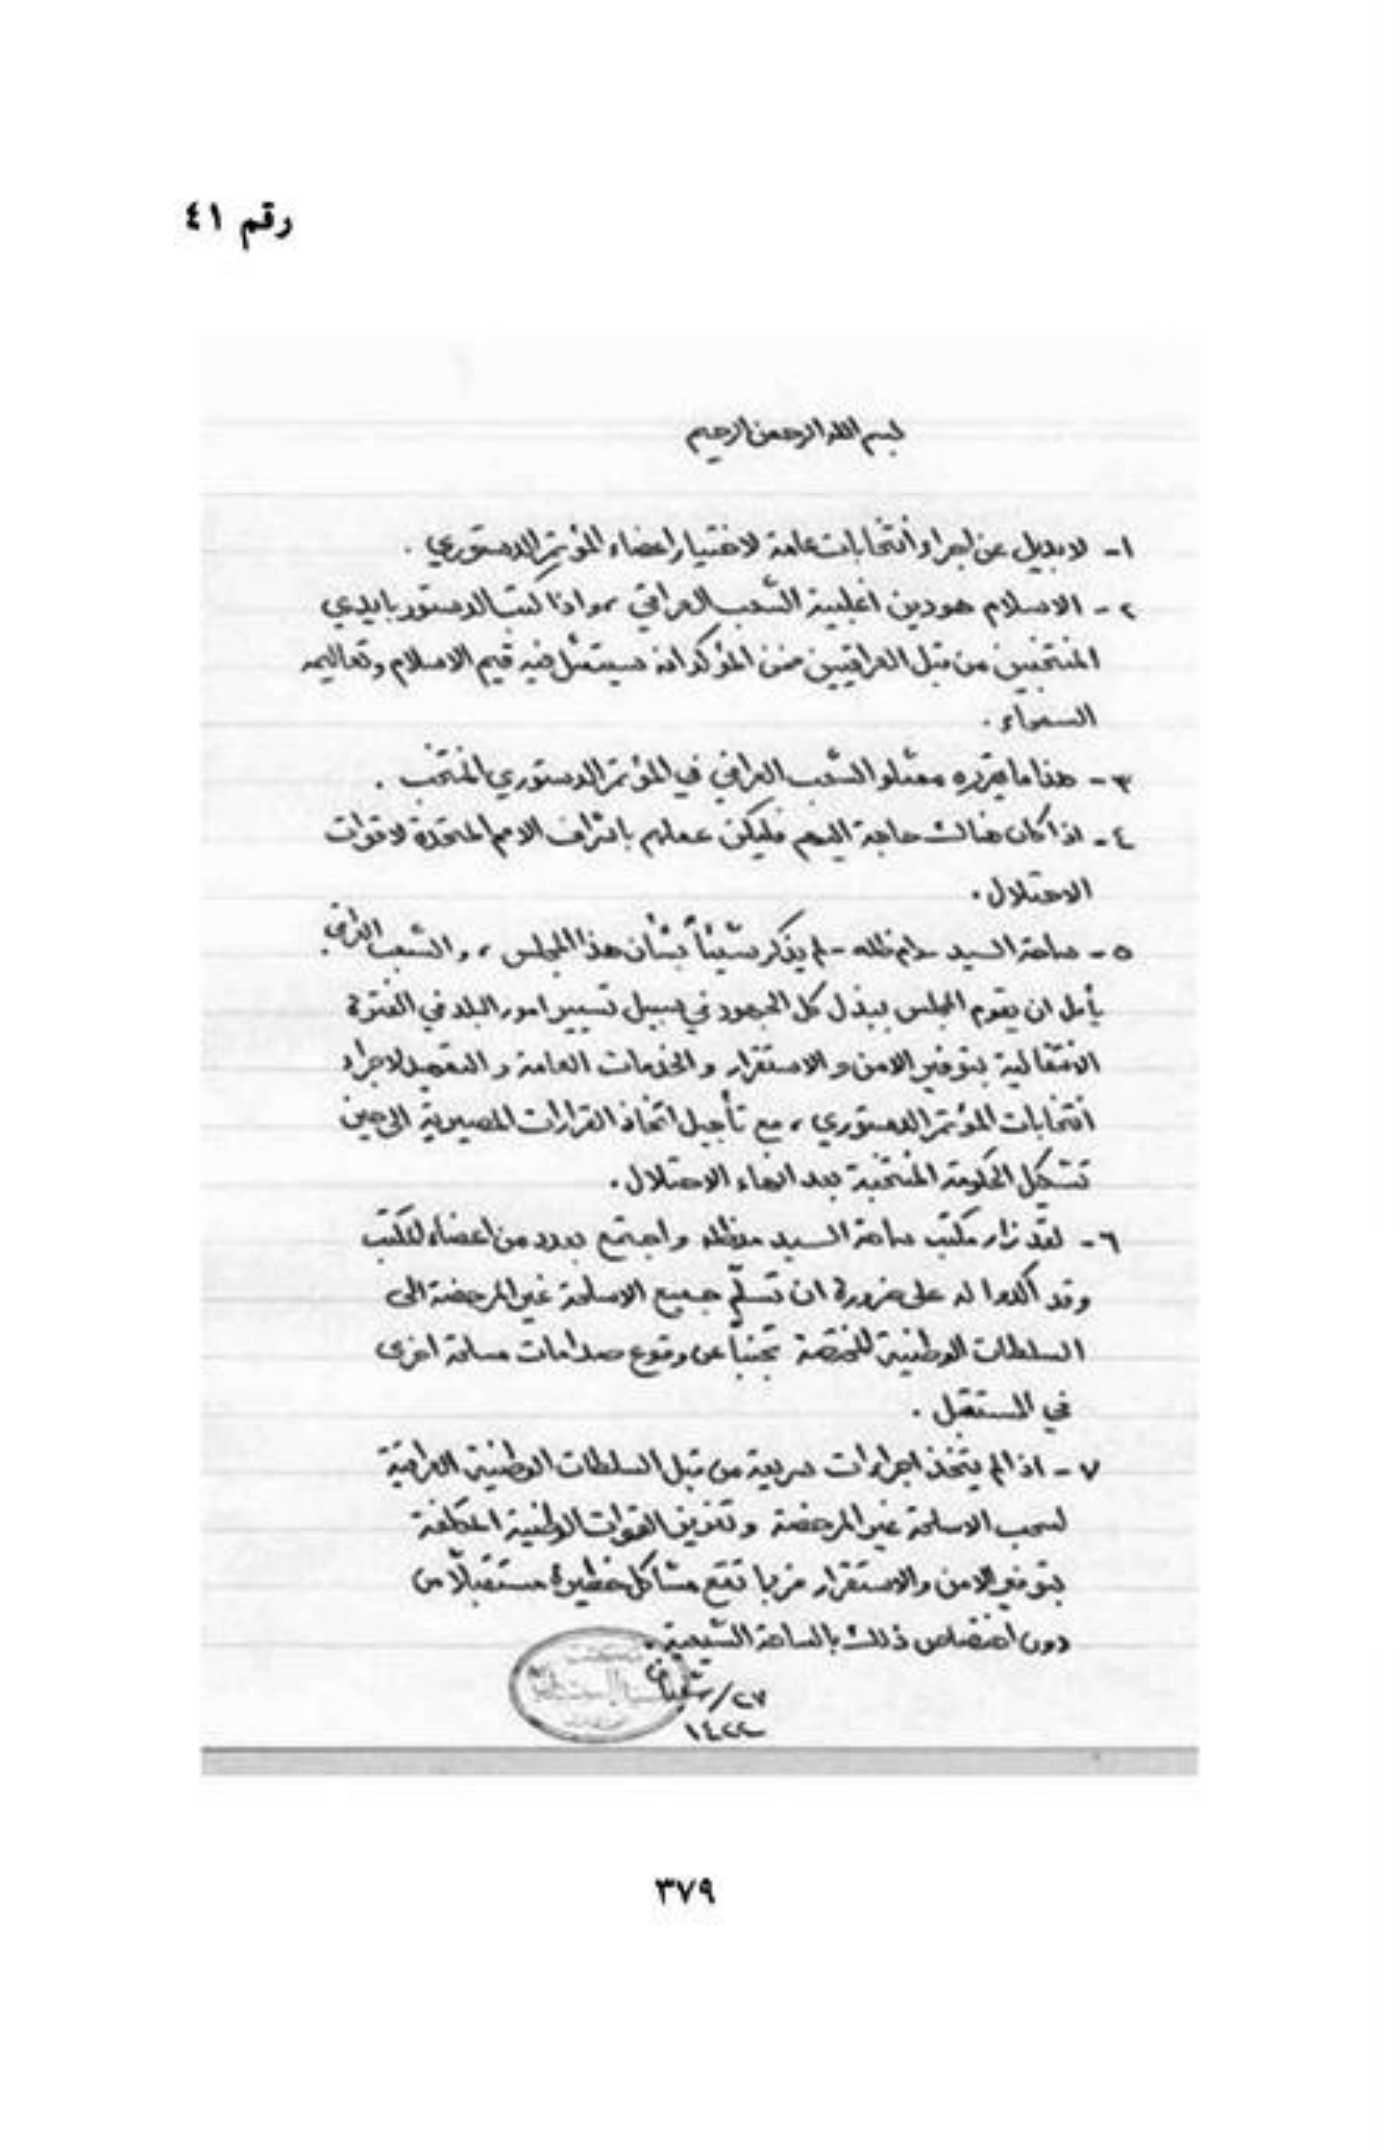 رقم ٤١
بسم الله الرحمن الرحيم
١- لا بديل عن اجراء انتخابات عامة لاختيار اعضاء المؤتمر الدستوري .
٢- الاسلام هو دين اغلبية الشعب العراقي ، واذا كتب الدستور بايدي
المنتخبين من قبل العراقيين فمن المؤكد انه سيتمثل فيه قيم الاسلام وتعاليمه
السمحاء .
٣- هذا ما يقرره ممثلو الشعب العراقي في المؤتمر الدستوري المنتخب .
٤- اذا كان هناك حاجة اليهم فليكن عملهم باشراف الامم المتحدة لا قوات
الاحتلال .
٥- سماحة السيد -دام ظله- لم يذكر شيئاً بشأن هذا المجلس ، والشعب العراقي
يأمل ان يقوم المجلس ببذل كل الجهود في سبيل تسيير امور البلد في الفترة
الانتقالية بتوفير الامن والاستقرار والخدمات العامة و التمهيد لاجراء
انتخابات المؤتمر الدستوري ، مع تأجيل اتخاذ القرارات المصيرية الى حين
تشكيل الحكومة المنتخبة بعد انهاء الاحتلال .
٦- لقد زار مكتب سماحة السيد مدظله واجتمع بعدد من اعضاء المكتب
وقد أكدوا له على ضرورة ان تسلّم جميع الاسلحة غير المرخصة الى
السلطات الوطنية المختصة تجنباً عن وقوع صدامات مسلحة اخرى
في المستقبل .
٧- اذا لم يتخذ اجراءات سريعة من قبل السلطات الوطنية العراقية
لسحب الاسلحة غير المرخصة وتعزيز القوات الوطنية المكلفة
بتوفير الامن والاستقرار فربما تقع مشاكل خطيرة مستقبلاً من
دون اختصاص ذلك بالساحة الشيعية .
٢٧/شعبان
١٤٢٤
٣٧٩